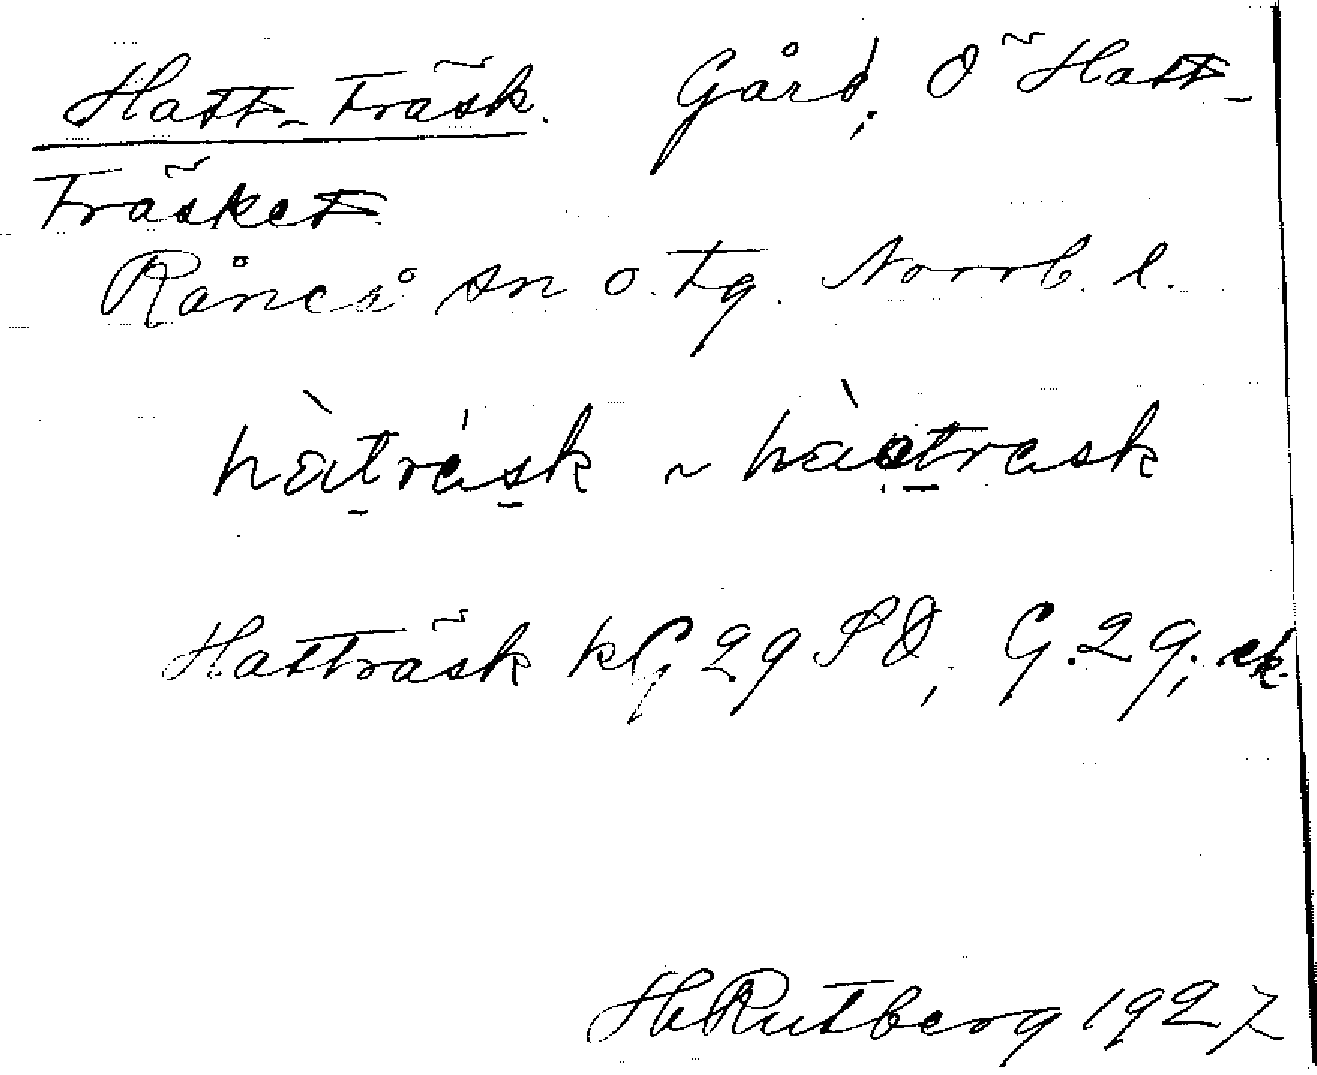 Hatt-träsk. Gård; Ö Hatt-
träsket
Råneå sn o. tg. Norrb. l.
hàtrásk ~ hàotrask
Hatträsk kG 29 SO, G. 29; ek.
HRutberg 1927